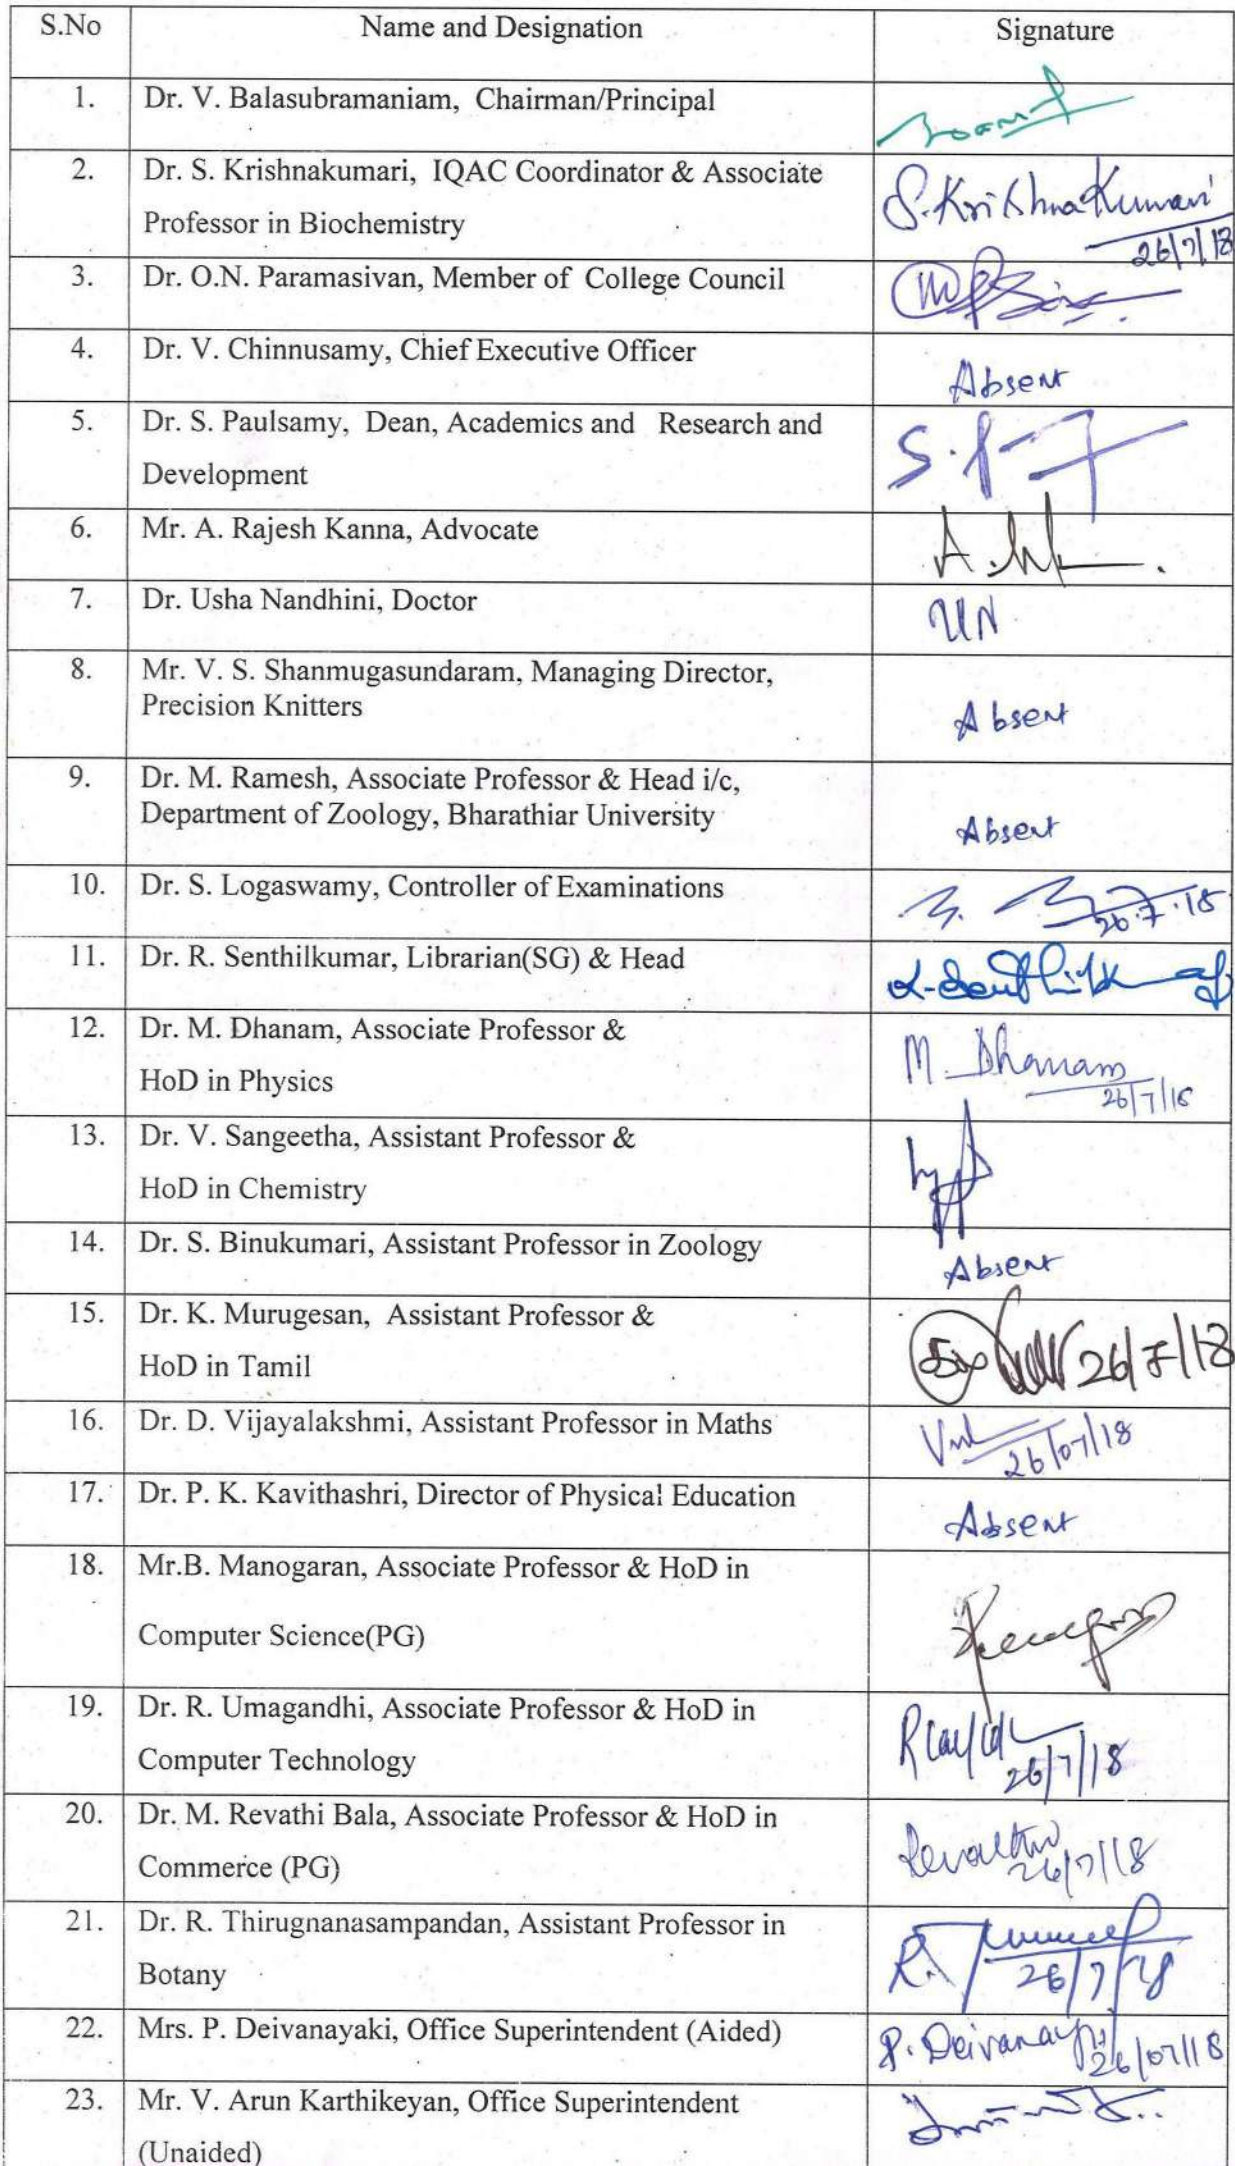 S.No Name and Designation Signature
1. Dr. V. Balasubramaniam, Chairman/Principal
2. Dr. S. Krishnakumari, IQAC Coordinator & Associate
Professor in Biochemistry
S. KrishnaKumari
26/7/18
3. Dr. O.N. Paramasivan, Member of College Council
4. Dr. V. Chinnusamy, Chief Executive Officer
Absent
5. Dr. S. Paulsamy, Dean, Academics and Research and
Development
6. Mr. A. Rajesh Kanna, Advocate
7. Dr. Usha Nandhini, Doctor
UN
8. Mr. V. S. Shanmugasundaram, Managing Director,
Precision Knitters
Absent
9. Dr. M. Ramesh, Associate Professor & Head i/c,
Department of Zoology, Bharathiar University
Absent
10. Dr. S. Logaswamy, Controller of Examinations
26.7.18
11. Dr. R. Senthilkumar, Librarian(SG) & Head
12. Dr. M. Dhanam, Associate Professor &
HoD in Physics
M. Dhanam
26/7/18
13. Dr. V. Sangeetha, Assistant Professor &
HoD in Chemistry
14. Dr. S. Binukumari, Assistant Professor in Zoology
Absent
15. Dr. K. Murugesan, Assistant Professor &
HoD in Tamil
26/7/18
16. Dr. D. Vijayalakshmi, Assistant Professor in Maths
26/07/18
17. Dr. P. K. Kavithashri, Director of Physical Education
Absent
18. Mr.B. Manogaran, Associate Professor & HoD in
Computer Science(PG)
19. Dr. R. Umagandhi, Associate Professor & HoD in
Computer Technology
26/7/18
20. Dr. M. Revathi Bala, Associate Professor & HoD in
Commerce (PG)
Revathi
26/7/18
21. Dr. R. Thirugnanasampandan, Assistant Professor in
Botany
26/7/18
22. Mrs. P. Deivanayaki, Office Superintendent (Aided)
P. Deivanayaki
26/07/18
23. Mr. V. Arun Karthikeyan, Office Superintendent
(Unaided)